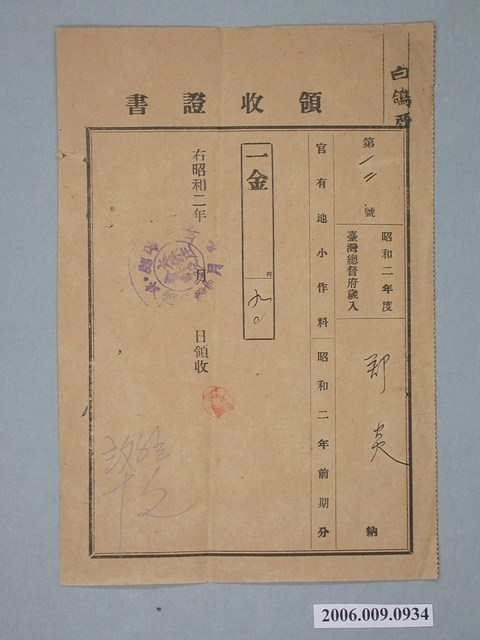 白鴿
領收證書
第一二號
昭和二年度
臺灣總督府歲入
鄭炎 納
官有地小作料 昭和二年前期分
一金 円 九〇
右昭和二年 月 日領收
2006.009.0934